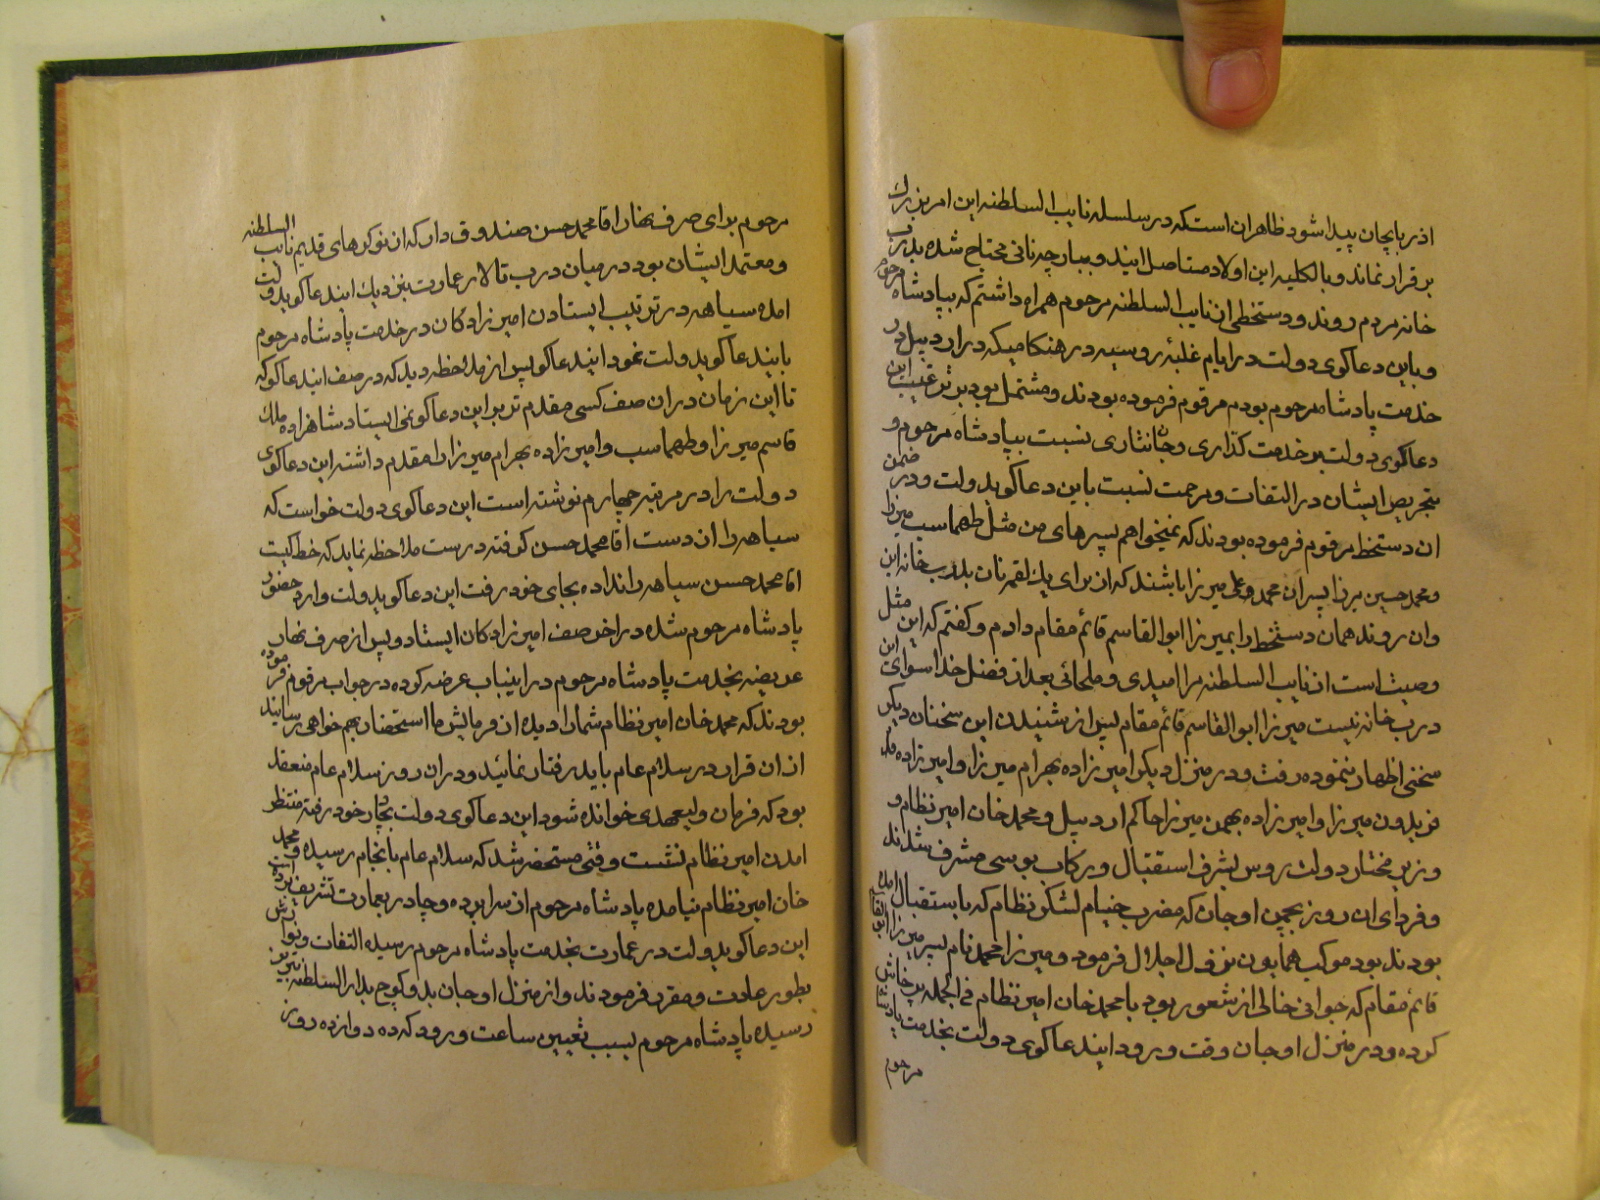 اذربایجان پیدا شود ظاهر ان است که در سلسله نایب السلطنه این امر بزرك
بر قرار نماند و بالکلیه این اولاد مستاصل ایند و بپارچه نانی محتاج شده بدرب
خانه مردم روند و دستخطی از نایب السلطنه مرحوم همراه داشتم که بپادشاه مرحوم
و باین دعاکوی دولت در ایام غلبهٔ روسیه در هنکامیکه در اردبیل در
خدمت پادشاه مرحوم بودم مرقوم فرموده بودند و مشتمل بود بر ترغیب این
دعاکوی دولت بر خدمت کذاری و جانثاری نسبت بپادشاه مرحوم و
بتحریص ایشان در التفات و مرحمت نسبت باین دعاکوید ولت و در ضمن
ان دستخط مرقوم فرموده بودند که نمیخواهم پسرهای من مثل طهماسب میرزا
و محمد حسین میرزا پسران محمد علی میرزا باشند که از برای یك لقمه نان بدرب خانه این
وان روند همان دستخط را بمیرزا ابو القاسم قائم مقام دادم و کفتم که این مثل
وصیت است از نایب السلطنه مرا امیدی و ملجائی بعد از فضل خدا سوای این
درب خانه نیست میرزا ابو القاسم قائم مقام پس از شنیدن این سخنان دیکر
سخنی اظهار ننموده رفت و در منزل دیکر امیر زاده بهرام میرزا و امیر زاده
فریدون میرزا و امیر زاده بهمن میرزا حاکم اردبیل و محمد خان امیر نظام و
وزیر مختار دولت روس بشرف استقبال و رکاب بوسی مشرف شدند
و فردای ان روز بچمن اوجان که مضرب خیام لشکر نظام که باستقبال امده
بودند بود موکب همایون نزول اجلال فرمود و میرزا محمد نام پسر میرزا ابو القاسم
قائم مقام که جوانی خالی از شعور بود با محمد خان امیر نظام فی الجمله پرخاش
کرده و در منزل اوجان وقت ورود ایندعاکوی دولت بخدمت پادشاه
مرحوم
مرحوم برای صرف نهار اقا محمد حسن صندوق دار که از نوکرهای قدیم نایب السلطنه
و معتمد ایشان بود در میان درب تالار عمارت بنزدیك ایندعاکوید ولت
امده سیاهه در ترتیب ایستادن امیر زادکان در خدمت پادشاه مرحوم
بایندعاکوید ولت نمود ایندعاکو پس از ملاحظه دید که در صف ایندعاکو که
تا این زمان در ان صف کسی مقدم تر بر این دعاکو نمی ایستاد شاهزاده ملك
قاسم میرزا و طهماسب و امیر زاده بهرام میرزا را مقدم داشته این دعاکوی
دولت را در مرتبه چهارم نوشته است این دعاکوی دولت خواست که
سیاهه را از دست اقا محمد حسن کرفته درست ملاحظه نماید که خط کیست
اقا محمد حسن سیاهه را نداده بجای خود رفت این دعاکوید ولت وارد حضور
پادشاه مرحوم شده در اخر صف امیر زادکان ایستاد و پس از صرف نهار
عریضه بخدمت پادشاه مرحوم در اینباب عرضه کرده در جواب مرقوم فرموده
بودند که محمد خان امیر نظام شما را دیده از فرمایش ما استحضار بهم خواهی رسانید
از ان قرار در سلام عام باید رفتار نمائید و در ان روز سلام عام منعقد
بود که فرمان ولیعهدی خوانده شود این دعاکوی دولت بچادر خود رفته منتظر
امدن امیر نظام نشست وقتی مستحضر شد که سلام عام بانجام رسیده و محمد
خان امیر نظام نیامده پادشاه مرحوم از سراپرده و چادر بعمارت تشریف برده است
این دعاکوید ولت در عمارت بخدمت پادشاه مرحوم رسیده التفات و نوازش
بطور عادت و مقرر فرمودند و از منزل اوجان بدو کوچ بدار السلطنه تبریز
رسیده پادشاه مرحوم بسبب تعیین ساعت ورود که ده دوازده روز